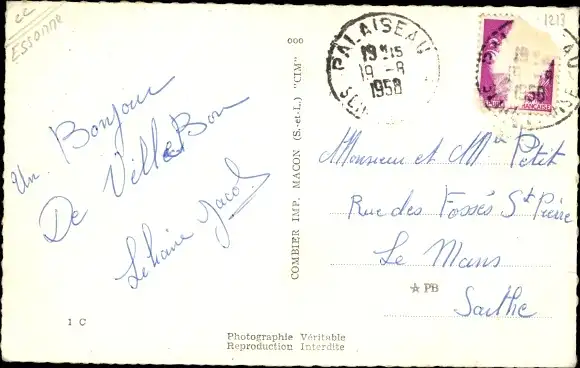 cc
ESSONNE
Un Bonjour
De VilleBon
Jacob
1 C
ooo
COMBIER IMP. MACON (S.-et-L.) "CIM"
Photographie Véritable
Reproduction Interdite
PALAISEAU
19H15
19 -8
1958
1213
FRANÇAISE
Monsieur et Mme Petit
Rue des Fossés St Pierre
Le Mans
☆ PB
Sarthe